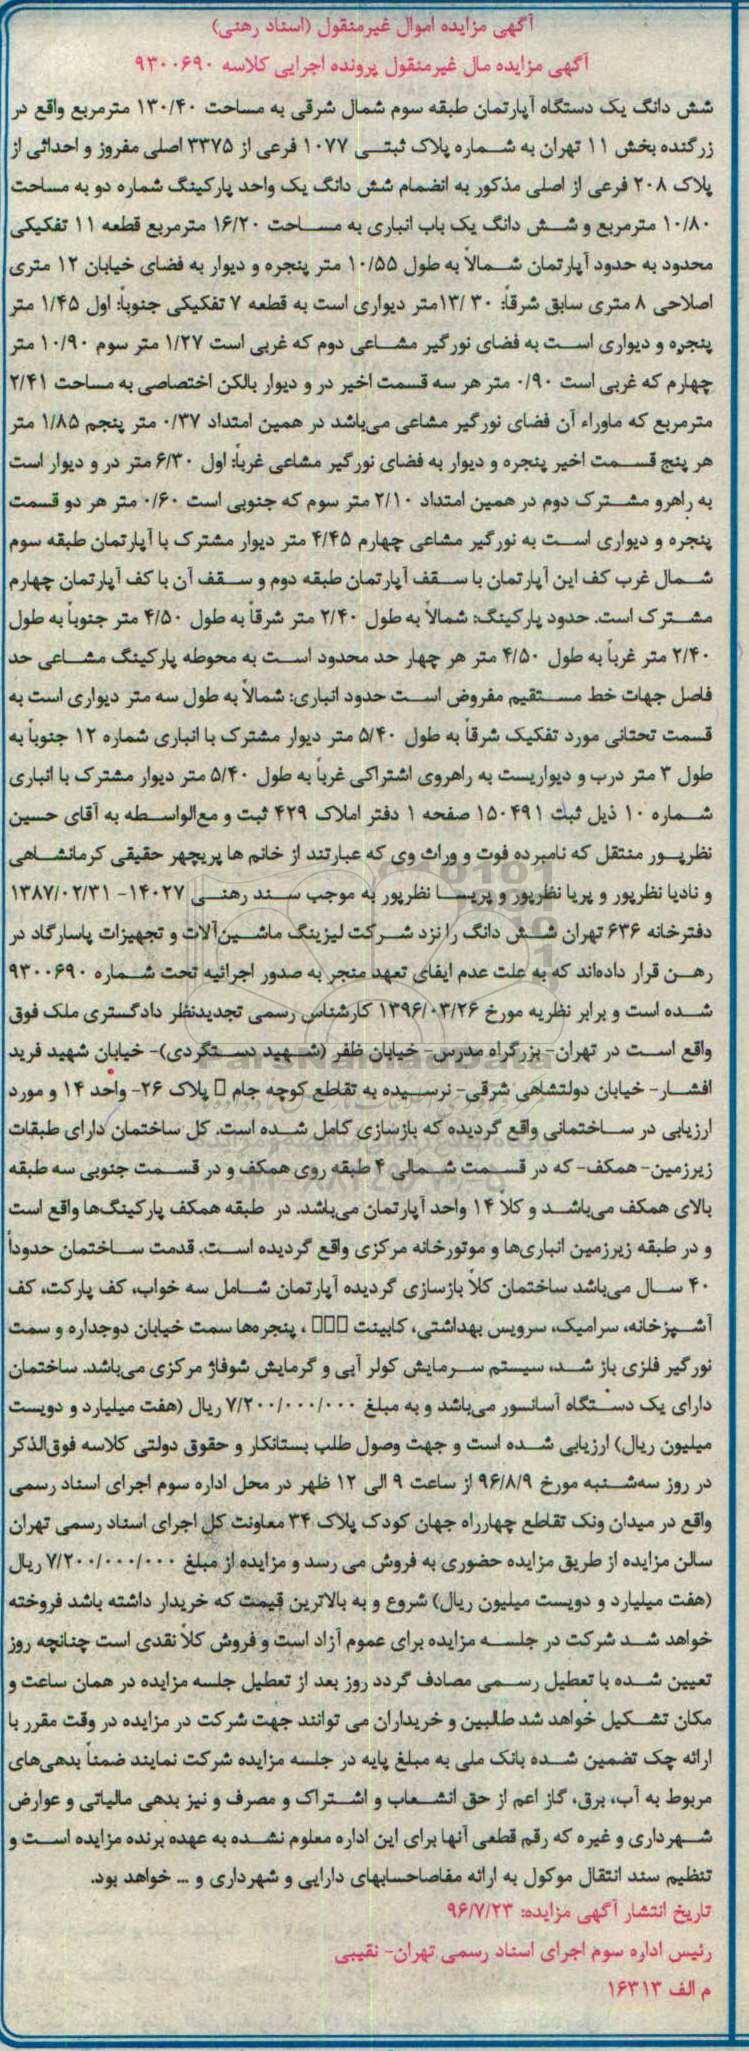 آگهی مزایده اموال غیرمنقول (اسناد رهنی)
آگهی مزایده مال غیرمنقول پرونده اجرایی کلاسه ۹۳۰۰۶۹۰
شش دانگ یک دستگاه آپارتمان طبقه سوم شمال شرقی به مساحت ۱۳۰/۴۰ مترمربع واقع در
زرگنده بخش ۱۱ تهران به شماره پلاک ثبتی ۱۰۷۷ فرعی از ۳۳۷۵ اصلی مفروز و احداثی از
پلاک ۲۰۸ فرعی از اصلی مذکور به انضمام شش دانگ یک واحد پارکینگ شماره دو به مساحت
۱۰/۸۰ مترمربع و شش دانگ یک باب انباری به مساحت ۱۶/۲۰ مترمربع قطعه ۱۱ تفکیکی
محدود به حدود آپارتمان شمالاً به طول ۱۰/۵۵ متر پنجره و دیوار به فضای خیابان ۱۲ متری
اصلاحی ۸ متری سابق شرقاً: ۱۳/۳۰ متر دیواری است به قطعه ۷ تفکیکی جنوباً: اول ۱/۴۵ متر
پنجره و دیواری است به فضای نورگیر مشاعی دوم که غربی است ۱/۲۷ متر سوم ۱۰/۹۰ متر
چهارم که غربی است ۰/۹۰ متر هر سه قسمت اخیر در و دیوار بالکن اختصاصی به مساحت ۲/۴۱
مترمربع که ماوراء آن فضای نورگیر مشاعی می‌باشد در همین امتداد ۰/۳۷ متر پنجم ۱/۸۵ متر
هر پنج قسمت اخیر پنجره و دیوار به فضای نورگیر مشاعی غرباً: اول ۶/۳۰ متر در و دیوار است
به راهرو مشترک دوم در همین امتداد ۲/۱۰ متر سوم که جنوبی است ۰/۶۰ متر هر دو قسمت
پنجره و دیواری است به نورگیر مشاعی چهارم ۴/۴۵ متر دیوار مشترک با آپارتمان طبقه سوم
شمال غرب کف این آپارتمان با سقف آپارتمان طبقه دوم و سقف آن با کف آپارتمان چهارم
مشترک است. حدود پارکینگ: شمالاً به طول ۲/۴۰ متر شرقاً به طول ۴/۵۰ متر جنوباً به طول
۲/۴۰ متر غرباً به طول ۴/۵۰ متر هر چهار حد محدود است به محوطه پارکینگ مشاعی حد
فاصل جهات خط مستقیم مفروض است حدود انباری: شمالاً به طول سه متر دیواری است به
قسمت تحتانی مورد تفکیک شرقاً به طول ۵/۴۰ متر دیوار مشترک با انباری شماره ۱۲ جنوباً به
طول ۳ متر درب و دیواریست به راهروی اشتراکی غرباً به طول ۵/۴۰ متر دیوار مشترک با انباری
شماره ۱۰ ذیل ثبت ۱۵۰۴۹۱ صفحه ۱ دفتر املاک ۴۲۹ ثبت و مع‌الواسطه به آقای حسین
نظرپور منتقل که نامبرده فوت و وراث وی که عبارتند از خانم ها پریچهر حقیقی کرمانشاهی
و نادیا نظرپور و پریا نظرپور و پریسا نظرپور به موجب سند رهنی ۱۴۰۲۷- ۱۳۸۷/۰۲/۳۱
دفترخانه ۶۳۶ تهران شش دانگ را نزد شرکت لیزینگ ماشین‌آلات و تجهیزات پاسارگاد در
رهن قرار داده‌اند که به علت عدم ایفای تعهد منجر به صدور اجرائیه تحت شماره ۹۳۰۰۶۹۰
شده است و برابر نظریه مورخ ۱۳۹۶/۰۳/۲۶ کارشناس رسمی تجدیدنظر دادگستری ملک فوق
واقع است در تهران- بزرگراه مدرس- خیابان ظفر (شهید دستگردی)- خیابان شهید فرید
افشار- خیابان دولتشاهی شرقی- نرسیده به تقاطع کوچه جام □ پلاک ۲۶- واحد ۱۴ و مورد
ارزیابی در ساختمانی واقع گردیده که بازسازی کامل شده است. کل ساختمان دارای طبقات
زیرزمین- همکف- که در قسمت شمالی ۴ طبقه روی همکف و در قسمت جنوبی سه طبقه
بالای همکف می‌باشد و کلاً ۱۴ واحد آپارتمان می‌باشد. در طبقه همکف پارکینگ‌ها واقع است
و در طبقه زیرزمین انباری‌ها و موتورخانه مرکزی واقع گردیده است. قدمت ساختمان حدوداً
۴۰ سال می‌باشد ساختمان کلاً بازسازی گردیده آپارتمان شامل سه خواب، کف پارکت، کف
آشپزخانه، سرامیک، سرویس بهداشتی، کابینت □□□ ، پنجره‌ها سمت خیابان دوجداره و سمت
نورگیر فلزی باز شد، سیستم سرمایش کولر آبی و گرمایش شوفاژ مرکزی می‌باشد. ساختمان
دارای یک دستگاه آسانسور می‌باشد و به مبلغ ۷/۲۰۰/۰۰۰/۰۰۰ ریال (هفت میلیارد و دویست
میلیون ریال) ارزیابی شده است و جهت وصول طلب بستانکار و حقوق دولتی کلاسه فوق‌الذکر
در روز سه‌شنبه مورخ ۹۶/۸/۹ از ساعت ۹ الی ۱۲ ظهر در محل اداره سوم اجرای اسناد رسمی
واقع در میدان ونک تقاطع چهارراه جهان کودک پلاک ۳۴ معاونت کل اجرای اسناد رسمی تهران
سالن مزایده از طریق مزایده حضوری به فروش می رسد و مزایده از مبلغ ۷/۲۰۰/۰۰۰/۰۰۰ ریال
(هفت میلیارد و دویست میلیون ریال) شروع و به بالاترین قیمت که خریدار داشته باشد فروخته
خواهد شد شرکت در جلسه مزایده برای عموم آزاد است و فروش کلاً نقدی است چنانچه روز
تعیین شده با تعطیل رسمی مصادف گردد روز بعد از تعطیل جلسه مزایده در همان ساعت و
مکان تشکیل خواهد شد طالبین و خریداران می توانند جهت شرکت در مزایده در وقت مقرر با
ارائه چک تضمین شده بانک ملی به مبلغ پایه در جلسه مزایده شرکت نمایند ضمناً بدهی‌های
مربوط به آب، برق، گاز اعم از حق انشعاب و اشتراک و مصرف و نیز بدهی مالیاتی و عوارض
شهرداری و غیره که رقم قطعی آنها برای این اداره معلوم نشده به عهده برنده مزایده است و
تنظیم سند انتقال موکول به ارائه مفاصاحسابهای دارایی و شهرداری و ... خواهد بود.
تاریخ انتشار آگهی مزایده: ۹۶/۷/۲۳
رئیس اداره سوم اجرای اسناد رسمی تهران- نقیبی
م الف ۱۶۳۱۳